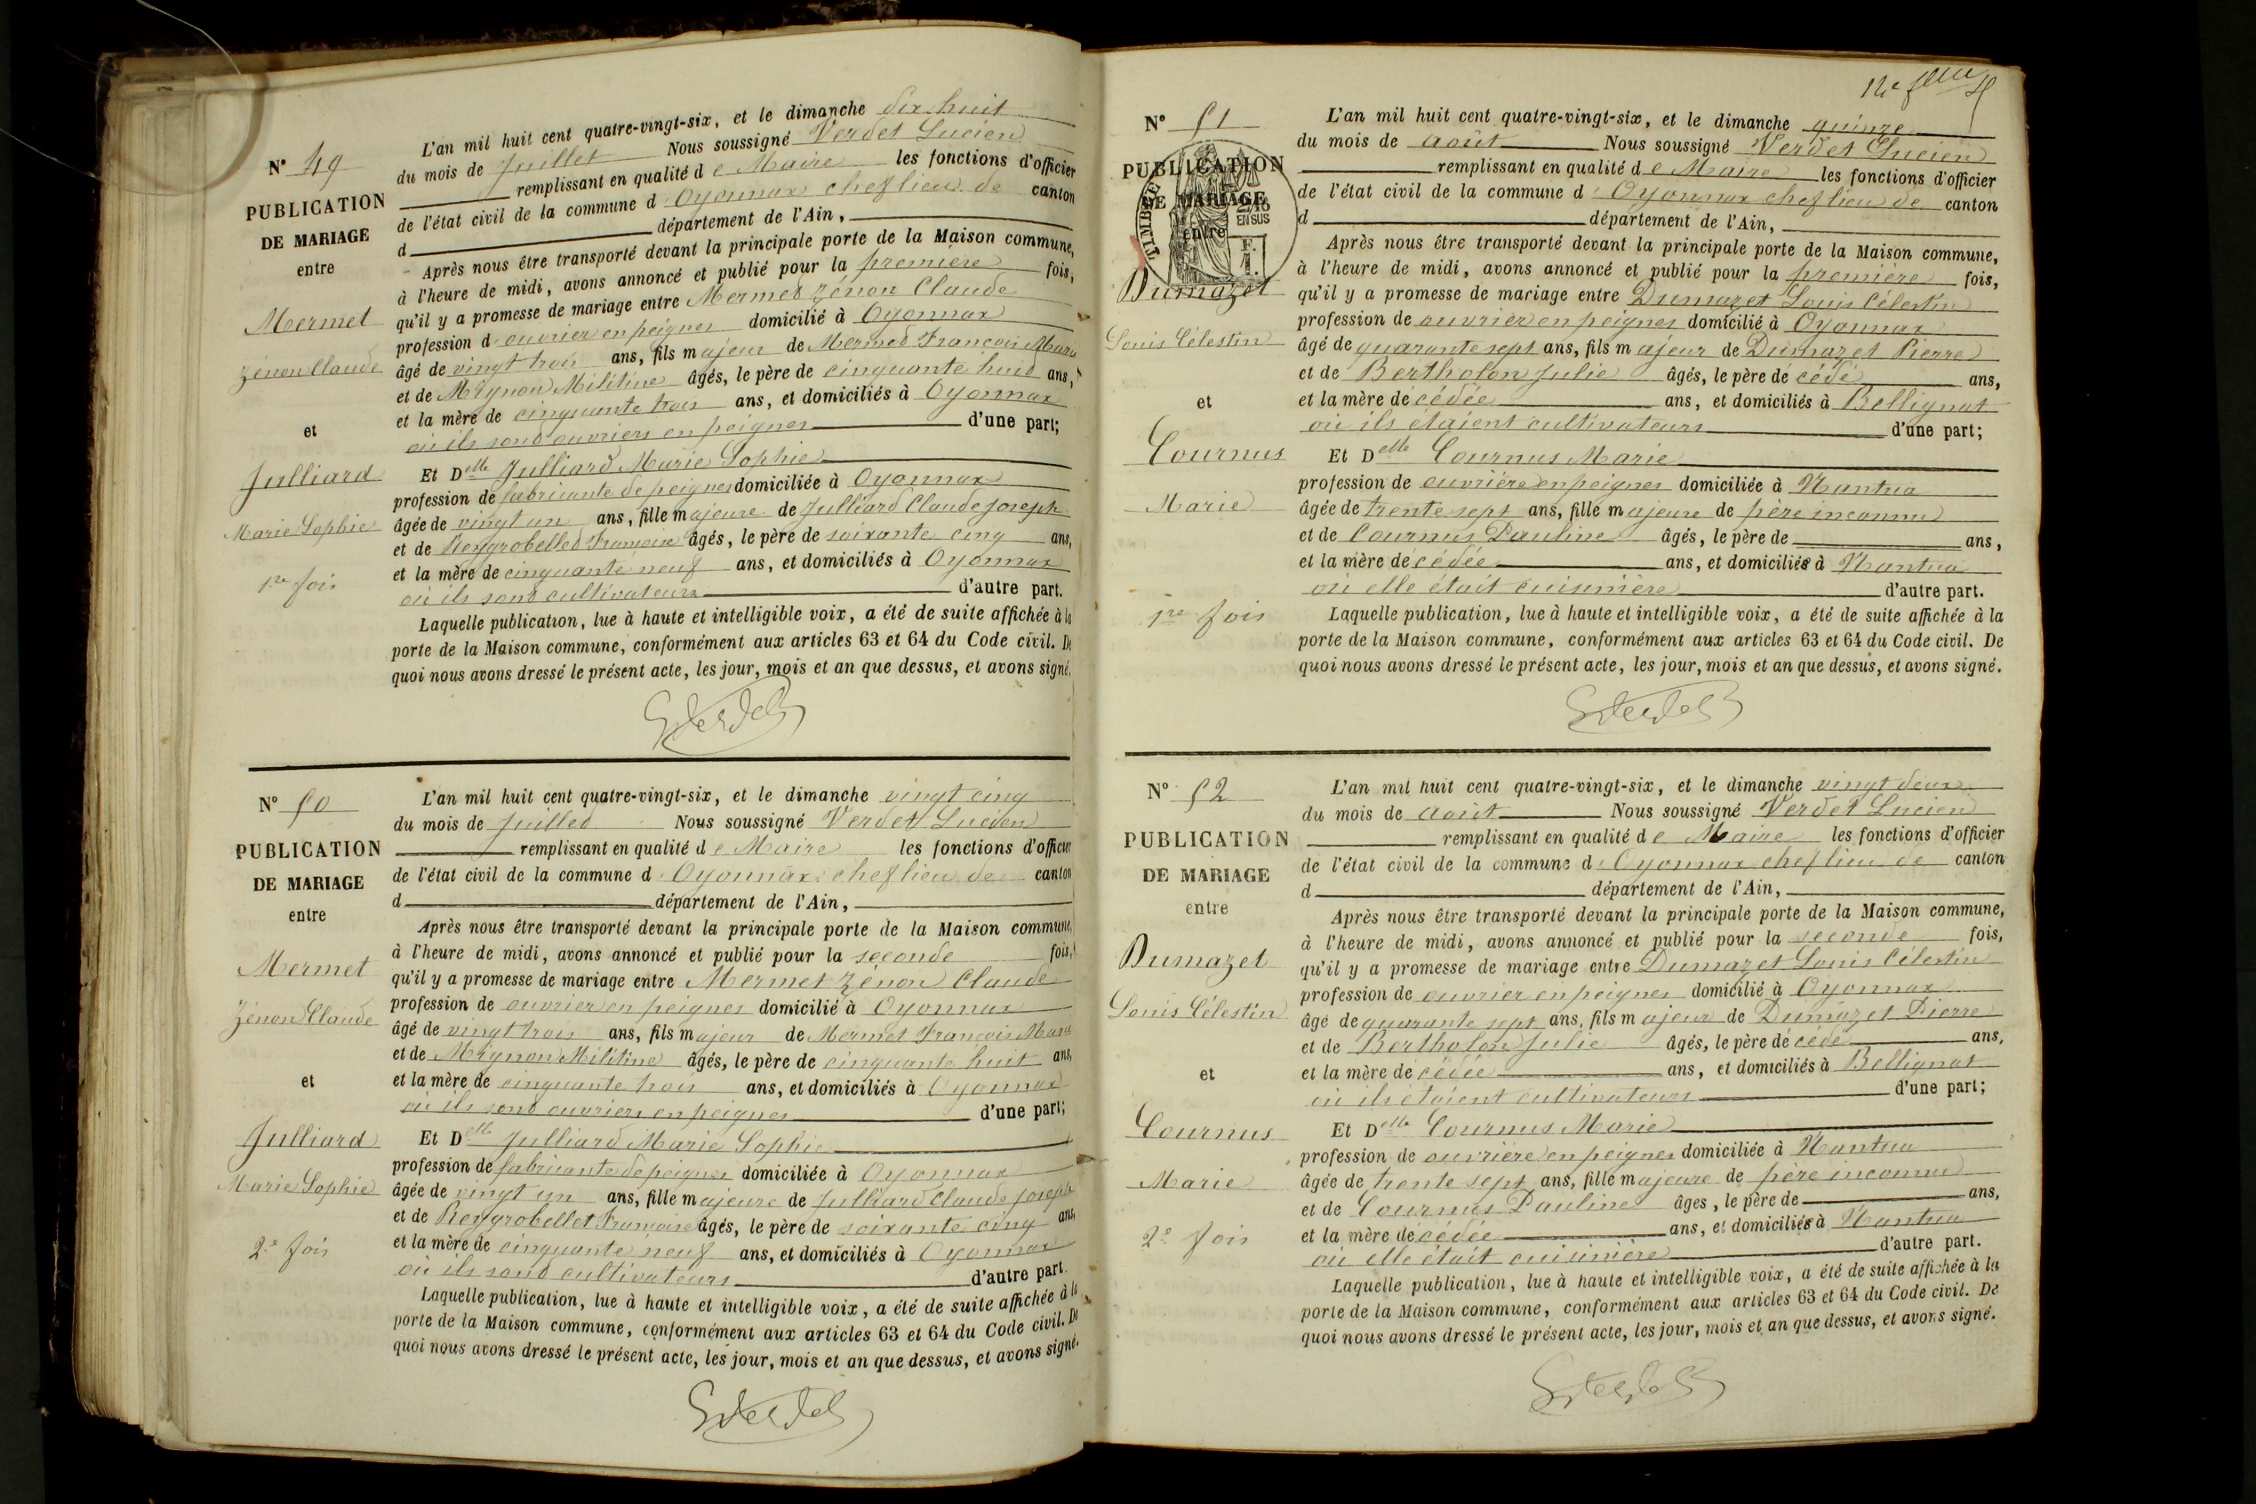 N° 49
PUBLICATION
DE MARIAGE
entre
Mermet
Zénon Claude
et
Julliard
Marie Sophie
1re fois
L'an mil huit cent quatre-vingt-six, et le dimanche dix huit
du mois de Juillet Nous soussigné Verdet Lucien
remplissant en qualité de Maire les fonctions d'officier
de l'état civil de la commune d'Oyonnax chef lieu de canton
d département de l'Ain,
Après nous être transporté devant la principale porte de la Maison commune,
à l'heure de midi, avons annoncé et publié pour la première fois,
qu'il y a promesse de mariage entre Mermet Zénon Claude
profession d'ouvrier en peignes domicilié à Oyonnax
âgé de vingt trois ans, fils majeur de Mermet François Marie
et de Mignon Militine âgés, le père de cinquante huit ans,
et la mère de cinquante trois ans, et domiciliés à Oyonnax
où ils sont ouvriers en peignes d'une part;
Et Delle Julliard Marie Sophie
profession de fabricante de peignes domiciliée à Oyonnax
âgée de vingt un ans, fille majeure de Julliard Claude Joseph
et de Reygrobellet Françoise âgés, le père de soixante cinq ans,
et la mère de cinquante neuf ans, et domiciliés à Oyonnax
où ils sont cultivateurs d'autre part.
Laquelle publication, lue à haute et intelligible voix, a été de suite affichée à la
porte de la Maison commune, conformément aux articles 63 et 64 du Code civil. De
quoi nous avons dressé le présent acte, les jour, mois et an que dessus, et avons signé.
LVerdet
N° 50
PUBLICATION
DE MARIAGE
entre
Mermet
Zénon Claude
et
Julliard
Marie Sophie
2e fois
L'an mil huit cent quatre-vingt-six, et le dimanche vingt cinq
du mois de Juillet Nous soussigné Verdet Lucien
remplissant en qualité de Maire les fonctions d'officier
de l'état civil de la commune d'Oyonnax chef lieu de canton
d département de l'Ain,
Après nous être transporté devant la principale porte de la Maison commune,
à l'heure de midi, avons annoncé et publié pour la seconde fois,
qu'il y a promesse de mariage entre Mermet Zénon Claude
profession de ouvrier en peignes domicilié à Oyonnax
âgé de vingt trois ans, fils majeur de Mermet François Marie
et de Mignon Militine âgés, le père de cinquante huit ans,
et la mère de cinquante trois ans, et domiciliés à Oyonnax
où ils sont ouvriers en peignes d'une part;
Et Delle Julliard Marie Sophie
profession de fabricante de peignes domiciliée à Oyonnax
âgée de vingt un ans, fille majeure de Julliard Claude Joseph
et de Reygrobellet Françoise âgés, le père de soixante cinq ans,
et la mère de cinquante neuf ans, et domiciliés à Oyonnax
où ils sont cultivateurs d'autre part.
Laquelle publication, lue à haute et intelligible voix, a été de suite affichée à la
porte de la Maison commune, conformément aux articles 63 et 64 du Code civil. De
quoi nous avons dressé le présent acte, les jour, mois et an que dessus, et avons signé.
LVerdet
N° 51
PUBLICATION
DE MARIAGE
entre
TIMBRE
2/10
EN SUS
F.
1.
Dumazet
Louis Célestin
et
Cournus
Marie
1re fois
L'an mil huit cent quatre-vingt-six, et le dimanche quinze
du mois de août Nous soussigné Verdet Lucien
remplissant en qualité de Maire les fonctions d'officier
de l'état civil de la commune d'Oyonnax chef lieu de canton
d département de l'Ain,
Après nous être transporté devant la principale porte de la Maison commune,
à l'heure de midi, avons annoncé et publié pour la première fois,
qu'il y a promesse de mariage entre Dumazet Louis Célestin
profession de ouvrier en peignes domicilié à Oyonnax
âgé de quarante sept ans, fils majeur de Dumazet Pierre
et de Bertholon Julie âgés, le père décédé ans,
et la mère décédée ans, et domiciliés à Bellignat
où ils étaient cultivateurs d'une part;
Et Delle Cournus Marie
profession de ouvrière en peignes domiciliée à Nantua
âgée de trente sept ans, fille majeure de père inconnu
et de Cournus Pauline âgés, le père de ans,
et la mère décédée ans, et domiciliés à Nantua
où elle était cuisinière d'autre part.
Laquelle publication, lue à haute et intelligible voix, a été de suite affichée à la
porte de la Maison commune, conformément aux articles 63 et 64 du Code civil. De
quoi nous avons dressé le présent acte, les jour, mois et an que dessus, et avons signé.
LVerdet
N° 52
PUBLICATION
DE MARIAGE
entre
Dumazet
Louis Célestin
et
Cournus
Marie
2e fois
L'an mil huit cent quatre-vingt-six, et le dimanche vingt deux
du mois de août Nous soussigné Verdet Lucien
remplissant en qualité de Maire les fonctions d'officier
de l'état civil de la commune d'Oyonnax chef lieu de canton
d département de l'Ain,
Après nous être transporté devant la principale porte de la Maison commune,
à l'heure de midi, avons annoncé et publié pour la seconde fois,
qu'il y a promesse de mariage entre Dumazet Louis Célestin
profession de ouvrier en peignes domicilié à Oyonnax
âgé de quarante sept ans, fils majeur de Dumazet Pierre
et de Bertholon Julie âgés, le père décédé ans,
et la mère décédée ans, et domiciliés à Bellignat
où ils étaient cultivateurs d'une part;
Et Delle Cournus Marie
profession de ouvrière en peignes domiciliée à Nantua
âgée de trente sept ans, fille majeure de père inconnu
et de Cournus Pauline âgés, le père de ans,
et la mère décédée ans, et domiciliés à Nantua
où elle était cuisinière d'autre part.
Laquelle publication, lue à haute et intelligible voix, a été de suite affichée à la
porte de la Maison commune, conformément aux articles 63 et 64 du Code civil. De
quoi nous avons dressé le présent acte, les jour, mois et an que dessus, et avons signé.
LVerdet